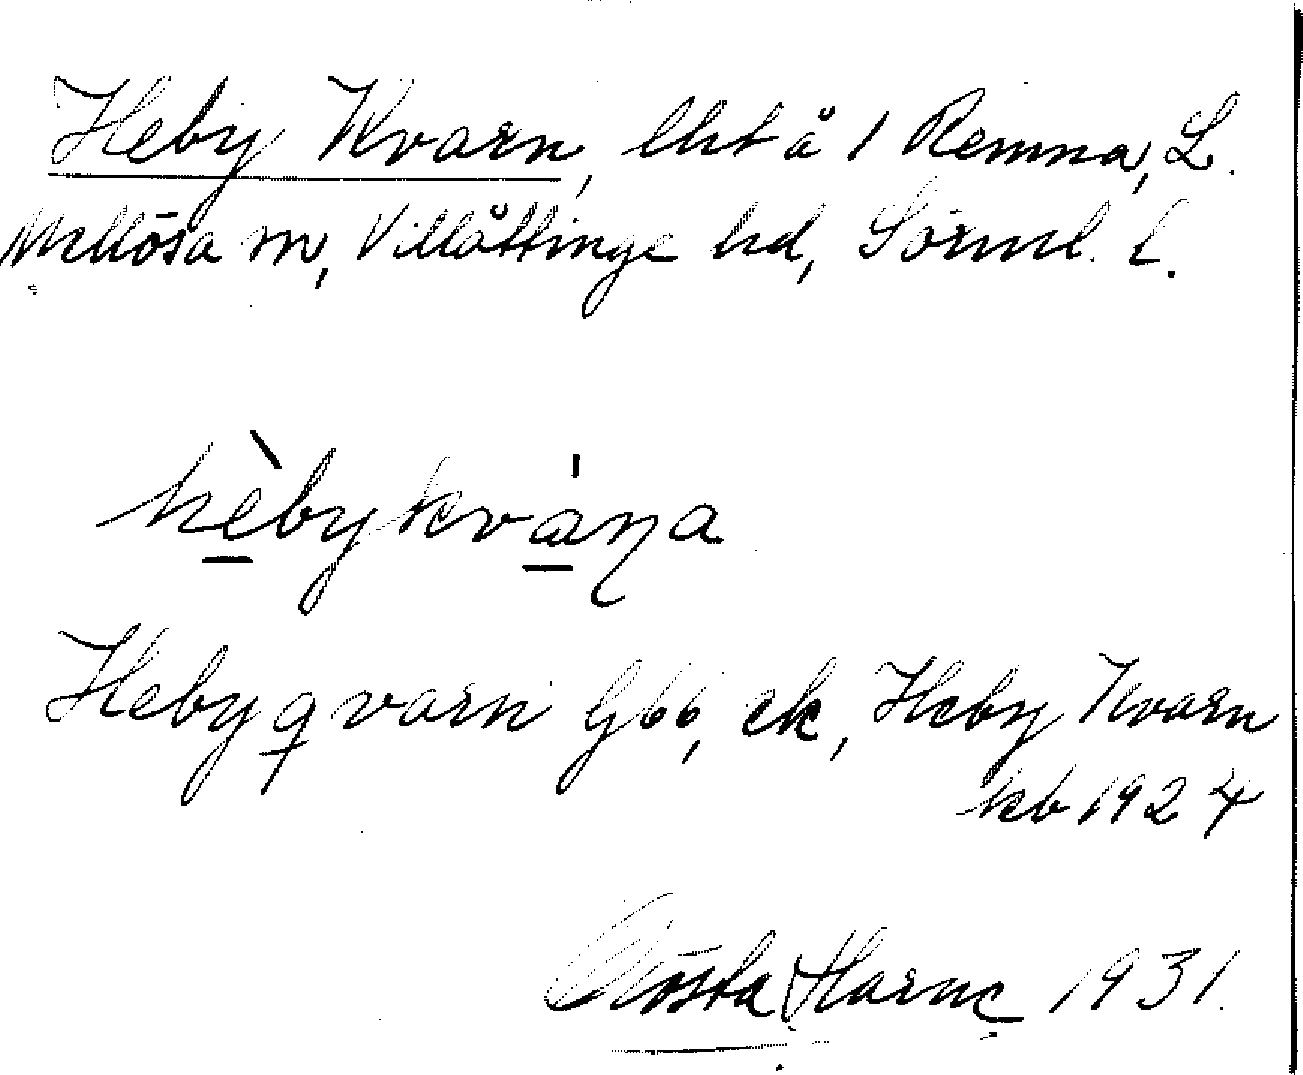 Heby Kvarn, lht å 1 Remna, L.
Mellösa sn, Villåttinge hd, Sörml. l.
hèbykvána
Hebyqvarn G66, ek, Heby Kvarn
kb 1924
Gösta Harne 1931.